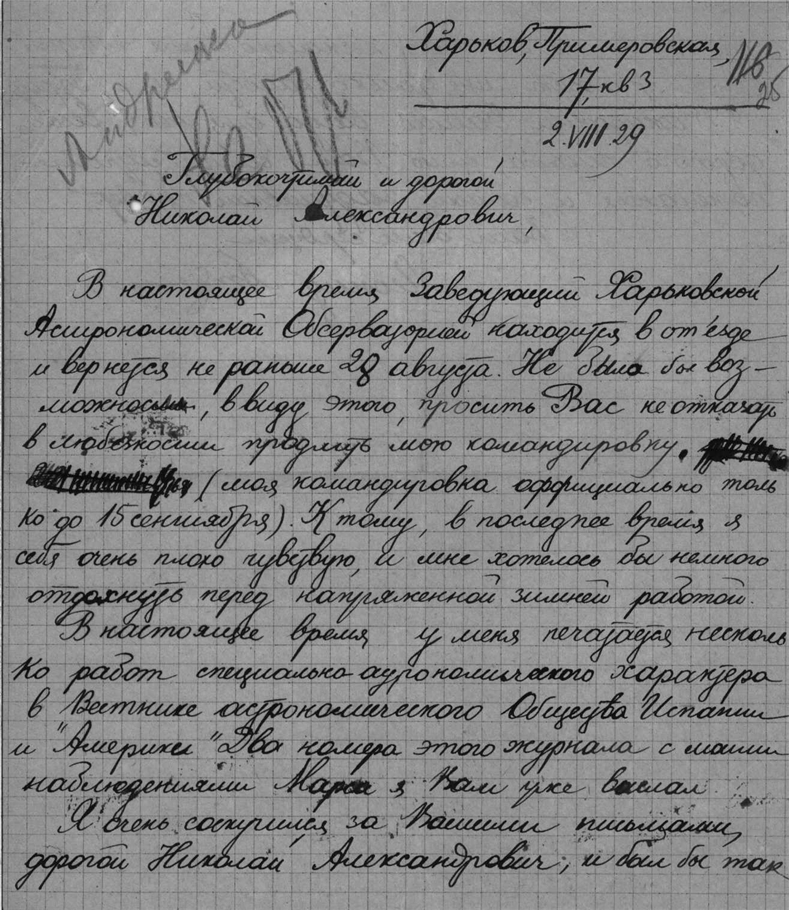 Харьков, Примеровская,
17, кв 3
2.VIII.29
Глубокочтимый и дорогой
Николай Александрович,
В настоящее время Заведующий Харьковской
Астрономической Обсерваторией находится в от'езде
и вернется не раньше 28 августа. Не была бы воз-
можность, в виду этого, просить Вас не отказать
в любезности продлить мою командировку.
(моя командировка оффициально толь
ко до 15 сентября). К тому, в последнее время я
себя очень плохо чувствую, и мне хотелось бы немного
отдохнуть перед напряженной зимней работой.
В настоящее время у меня печатается несколь
ко работ специально-астрономического характера
в Вестнике астрономического Общества Испании
и "Америки" Два номера этого журнала с моими
наблюдениями Марса я Вам уже выслал.
Я очень соскучился за Вашими письмами,
дорогой Николай Александрович, и был бы так